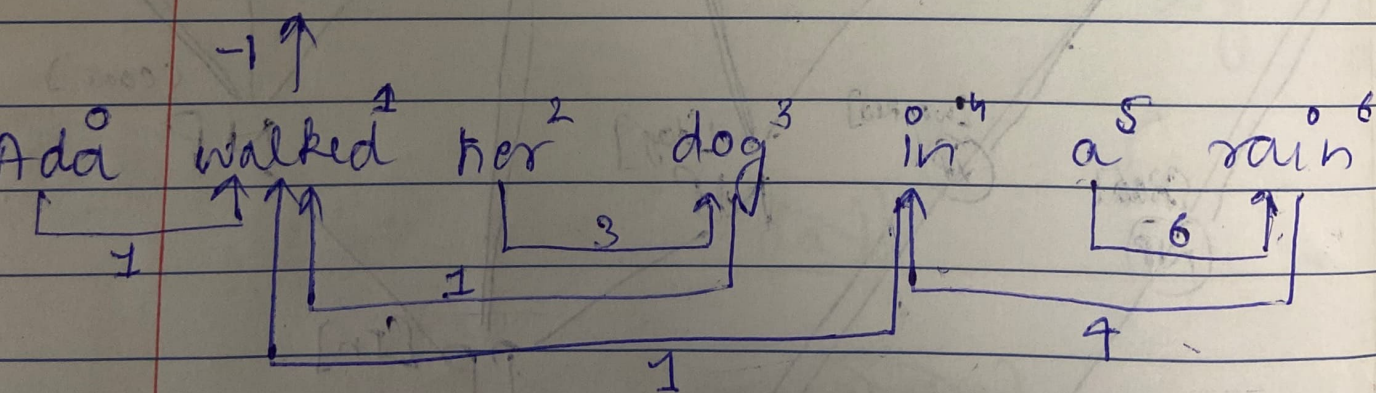 -1
Ada⁰ walked¹ her² dog³ in⁴ a⁵ rain⁶
3 6
1 1
4
1